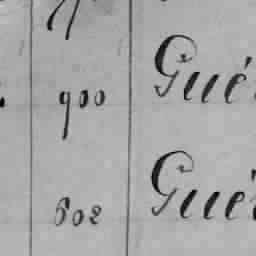 900 Gué
602 Gué